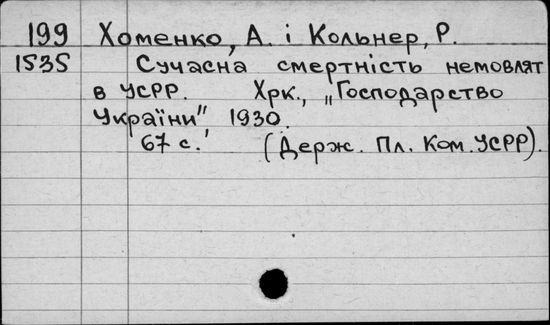 199 Хоменко, А. і Кольнер, Р.
1535 Сучасна смертність немовлят
в УСРР. Хрк., „Господарство
України", 1930.
67 с. (Держ. Пл. Ком. УСРР).